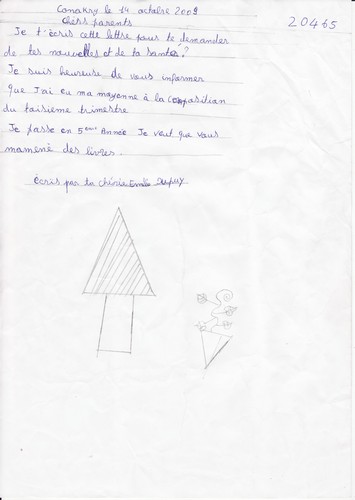 Conakry le 14 octobre 2009
chèrs parents
20465
Je t'écris cette lettre pour te demander
de tes nouvelles et de ta santé?
Je suis heureuse de vous informer
que J'ai eu ma moyenne à la composition
du toisieme trimestre
Je passe en 5eme Année Je veut que vous
mamenè des livres.
écris par ta chérie Emilie Dupuy